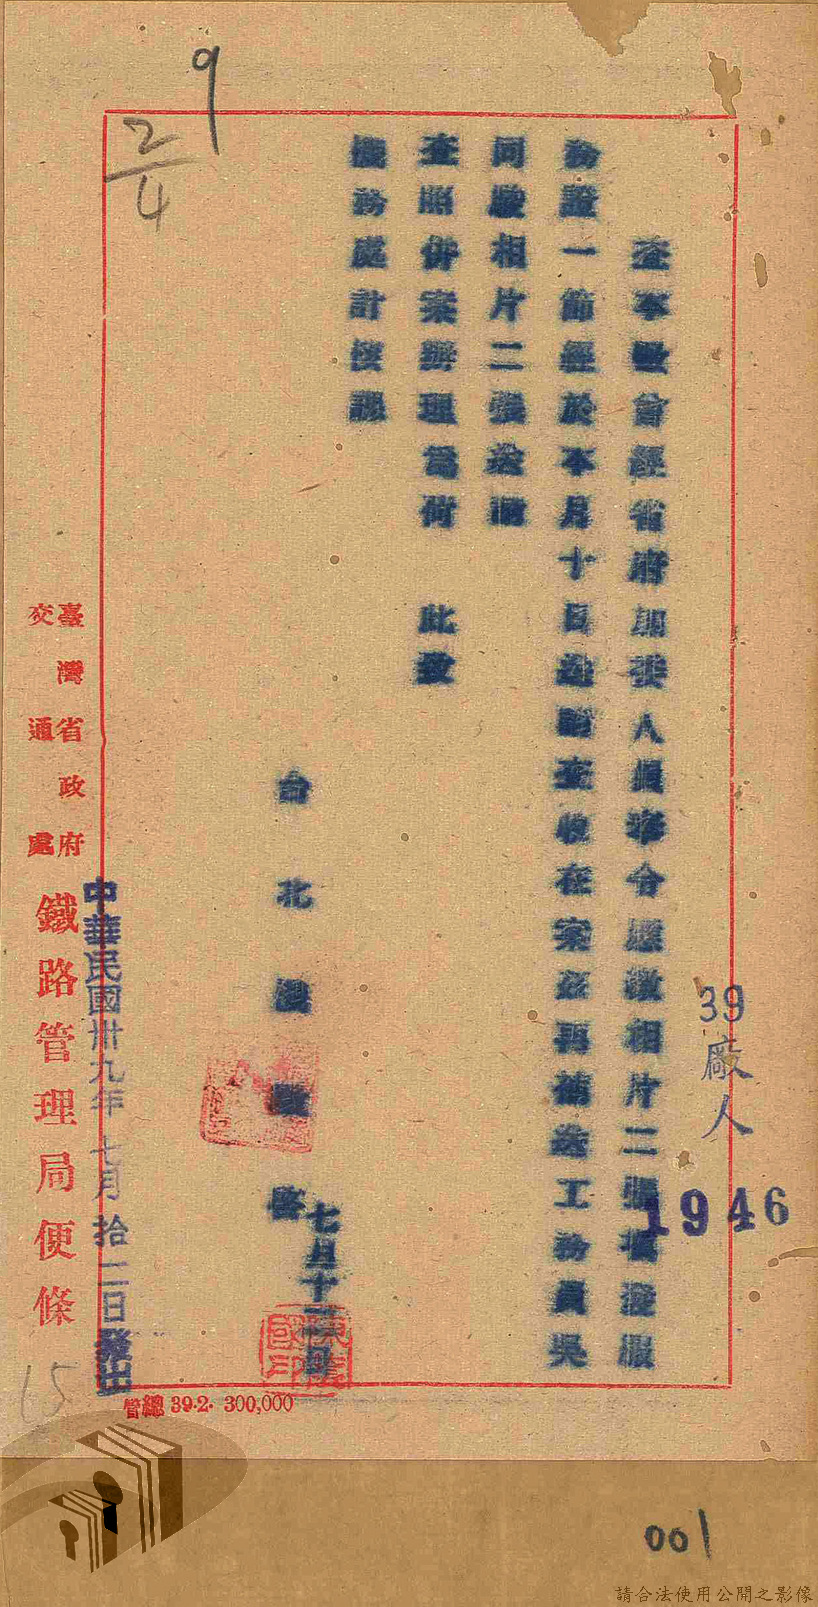 9
2/4
39
廠人
1946
查本廠曾經省府加委人員奉令應繳相片二張填發服
務證一節經於本月十日送請查收在案茲再補送工務員吳
同駿相片二張送請
查照併案辦理為荷 此致
機務處計核課
台北機廠啓
七月十二日
中華民國卅九年七月拾二日發出
臺灣省政府
交通處
鐵路管理局便條
管總 39.2. 300,000
15
001
請合法使用公開之影像